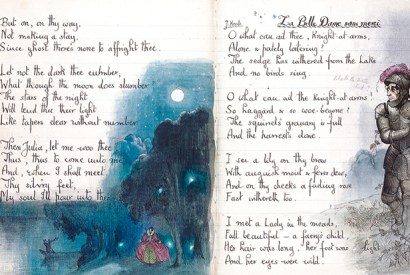 But on, on thy way,
Not making a stay,
Since ghost there's none to affright thee.
Let not the dark thee cumber,
What though the moon does slumber
The stars of the night
Will lend thee their light
Like tapers clear without number.
Then Julia, let me woo thee
Thus, thus to come unto me
And, when I shall meet
Thy silvry feet,
My soul I'll pour into thee.
J. Keats. La Belle Dame sans merci.
O what can ail thee, Knight-at-arms,
Alone & palely loitering?
The sedge has withered from the Lake
And no birds sing.
O what can ail thee Knight-at-arms
So haggard & so woe-begone?
The squirrel's granary is full
And the harvest's done.
I see a lily on thy brow
With anguish moist & fever dew,
And on thy cheeks a fading rose
Fast withereth too.
I met a Lady in the meads,
Full beautiful - a faery's child,
Her hair was long, her foot was light
And her eyes were wild.